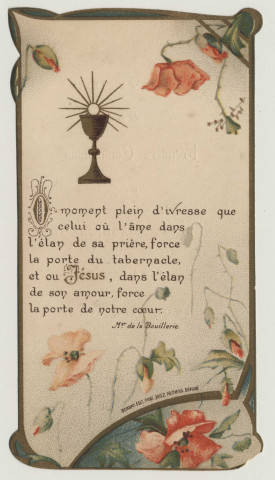 O moment plein d'ivresse que
celui où l'âme dans
l'élan de sa prière, force
la porte du tabernacle,
et ou Jésus, dans l'élan
de son amour, force
la porte de notre cœur.
Mgr de la Bouillerie.